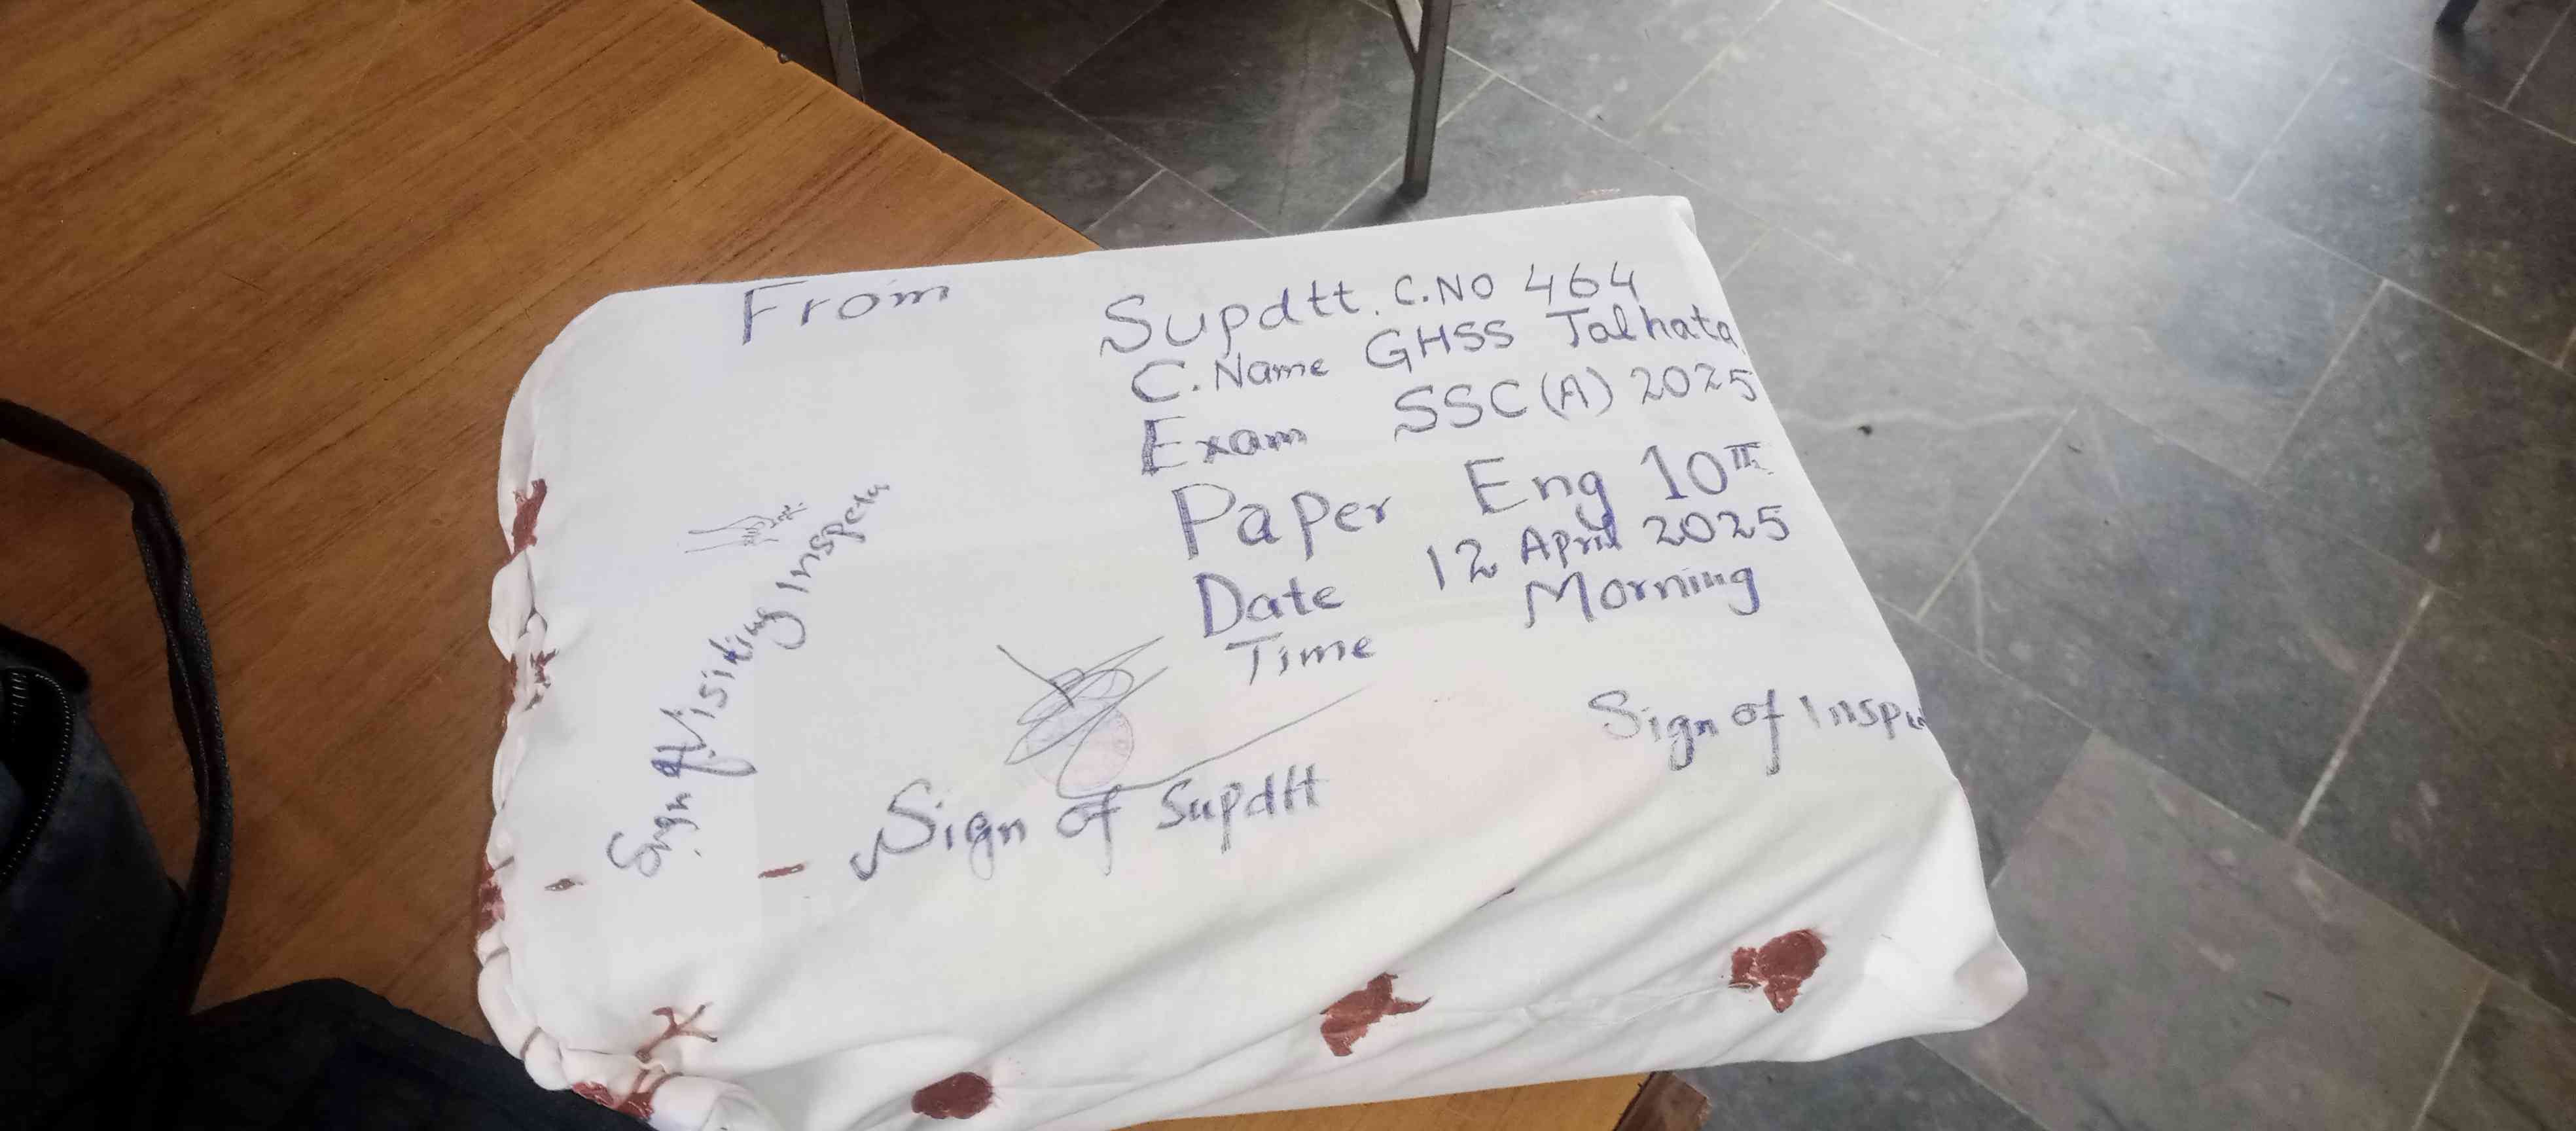 From
Supdtt. C.NO 464
C.Name GHSS Talhata
Exam SSC(A) 2025
Paper Eng 10th
Date 12 April 2025
Time Morning
Sign of Visiting Inspector
Sign of Supdtt
Sign of Inspe